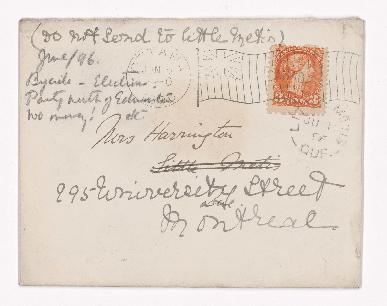 (Do not Send to Little Metis)
June/96.
Bycicle - Election -
Party north of Edmonton
No money! etc
Mrs Harrington
Little Metis
295 University Street
Montreal
QUE